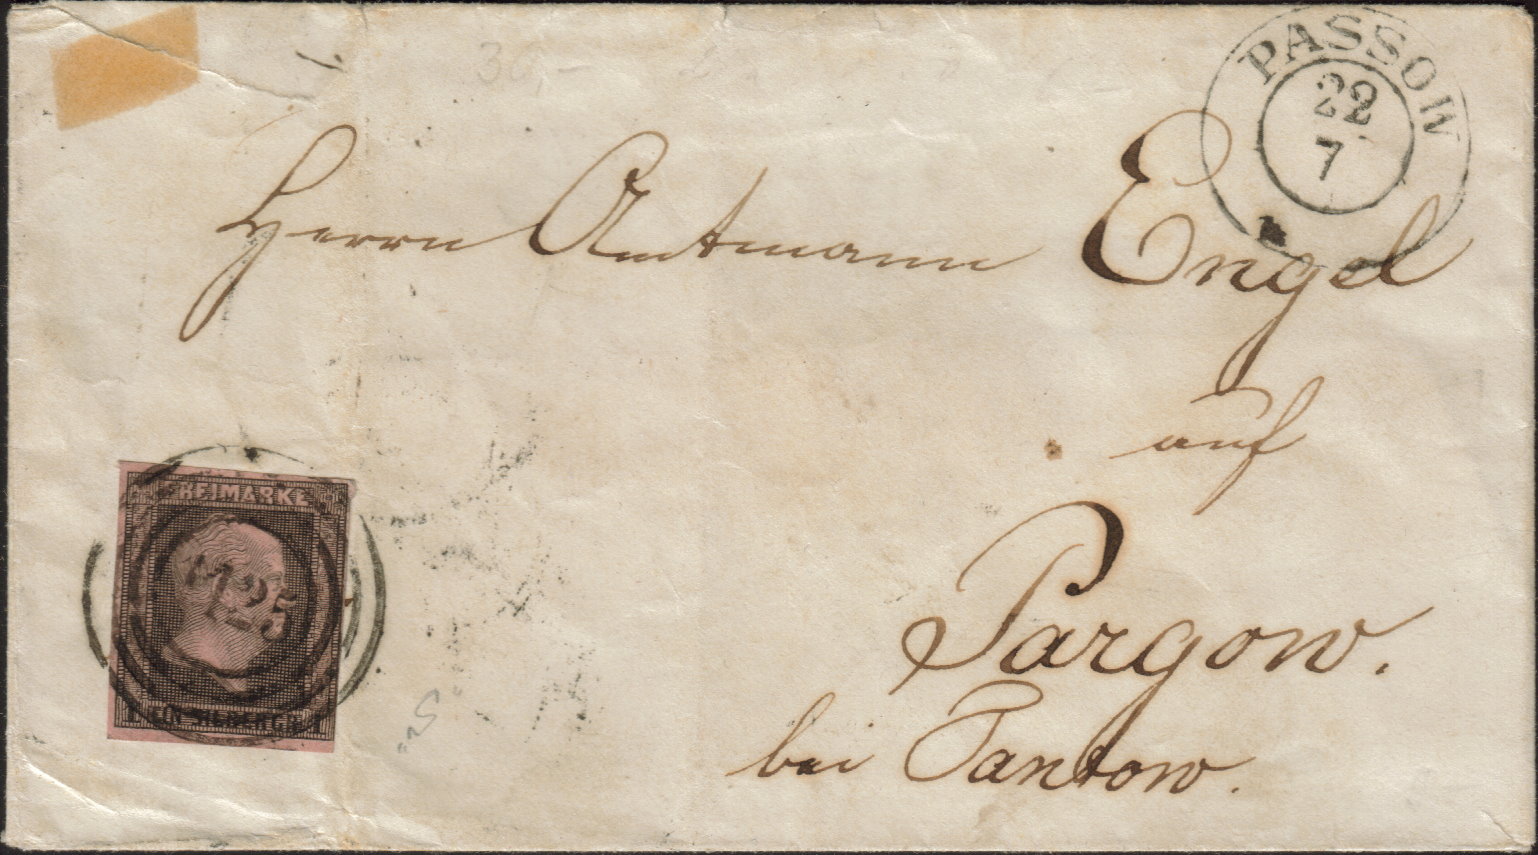 30,-
PASSOW
22
7
Herrn Amtmann Engel
auf
Pargow.
bei Tantow.
FREIMARKE
1 EIN SILBERGR. 1